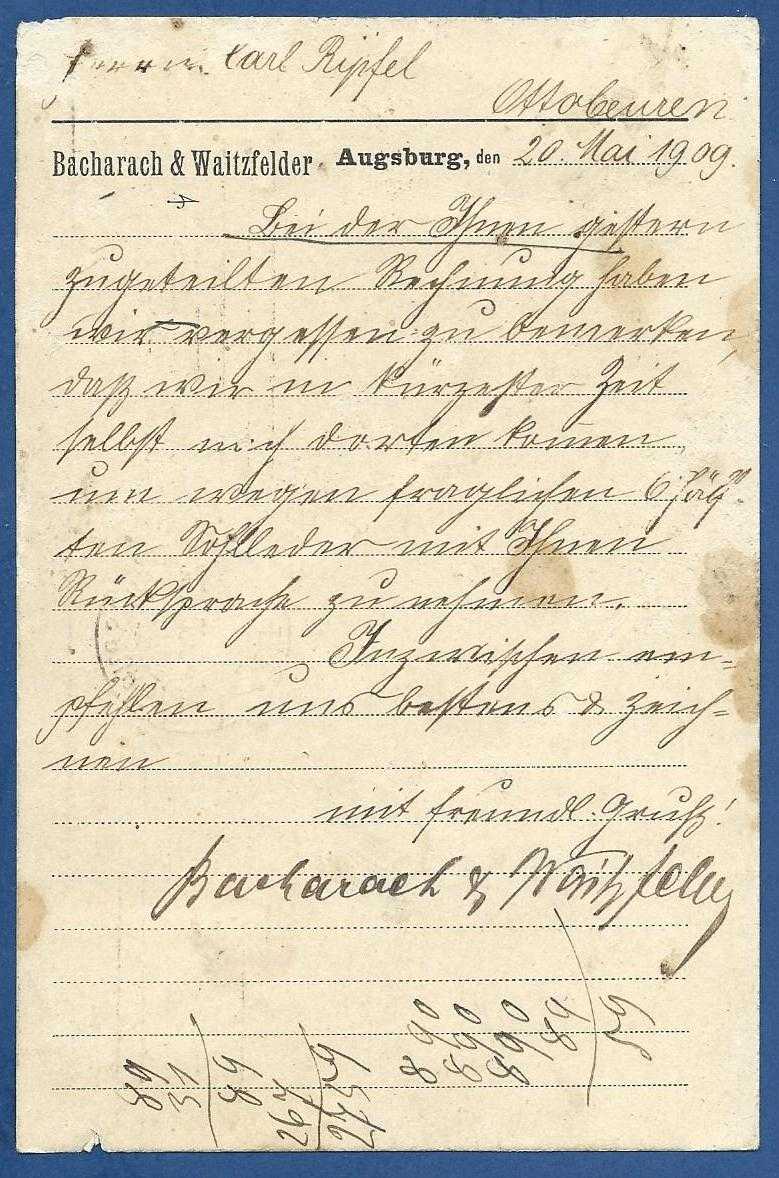 Herrn Carl Ripfel
Ottobeuren
Bacharach & Waitzfelder Augsburg, den 20. Mai 1909.
Bei der Ihnen gestern
zugeteilten Rechnung haben
wir vergessen zu bemerken,
daß wir in kürzester Zeit
selbst nach dorten komen,
um wegen fraglichen
ten Sohlleder mit Ihnen
Rücksprache zu nehmen.
Inzwischen em-
pfehlen uns bestens & zeich-
nen
mit freundl. Gruß!
Bacharach & Waitzfelder
890
890
890
89
89
31
89
267
2759